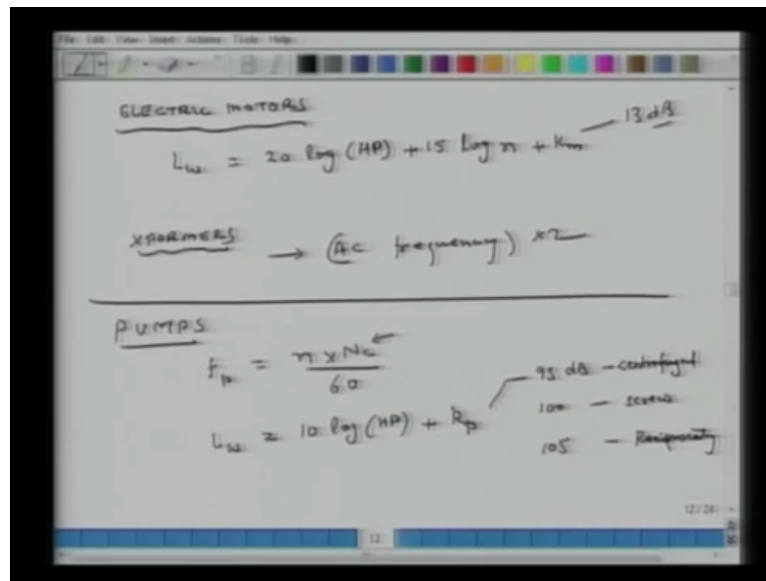 File Edit View Insert Actions Tools Help
ELECTRIC MOTORS
Lw = 20 log (HP) + 15 Log n + Km — 13 dB
XFORMERS → (AC frequency) x2
PUMPS
Fp = n x Nc / 60
Lw = 10 log (HP) + kp
95 dB - centrifugal
100 - screw
105 - Reciprocity
12